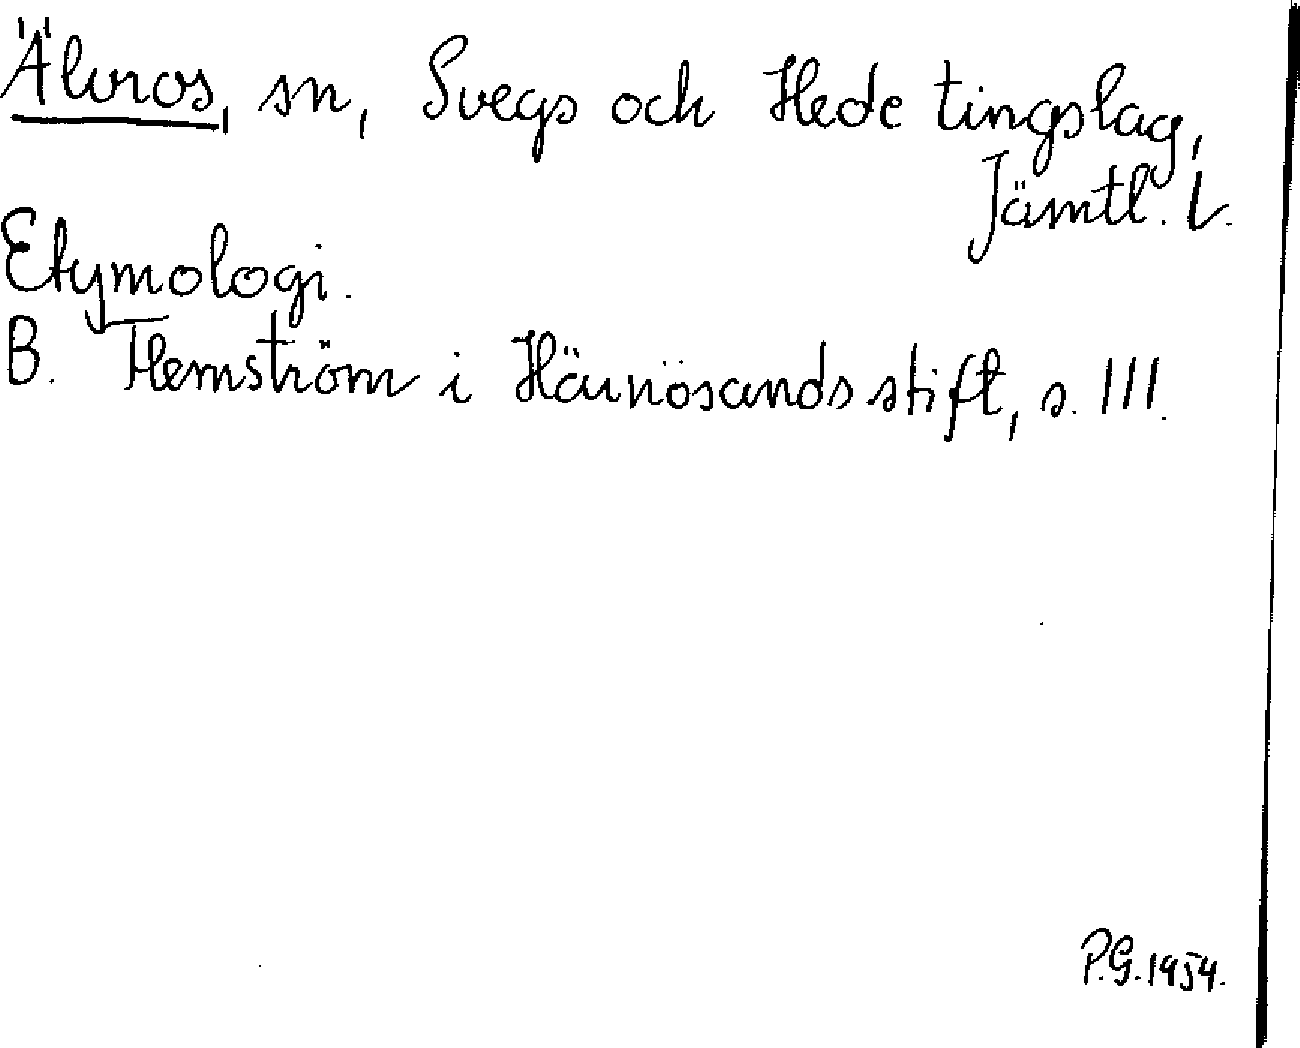 Älvros, sn, Svegs och Hede tingslag,
Jämtl. L.
Etymologi.
B. Hemström i Härnösands stift, s. 111.
P.G. 1954.